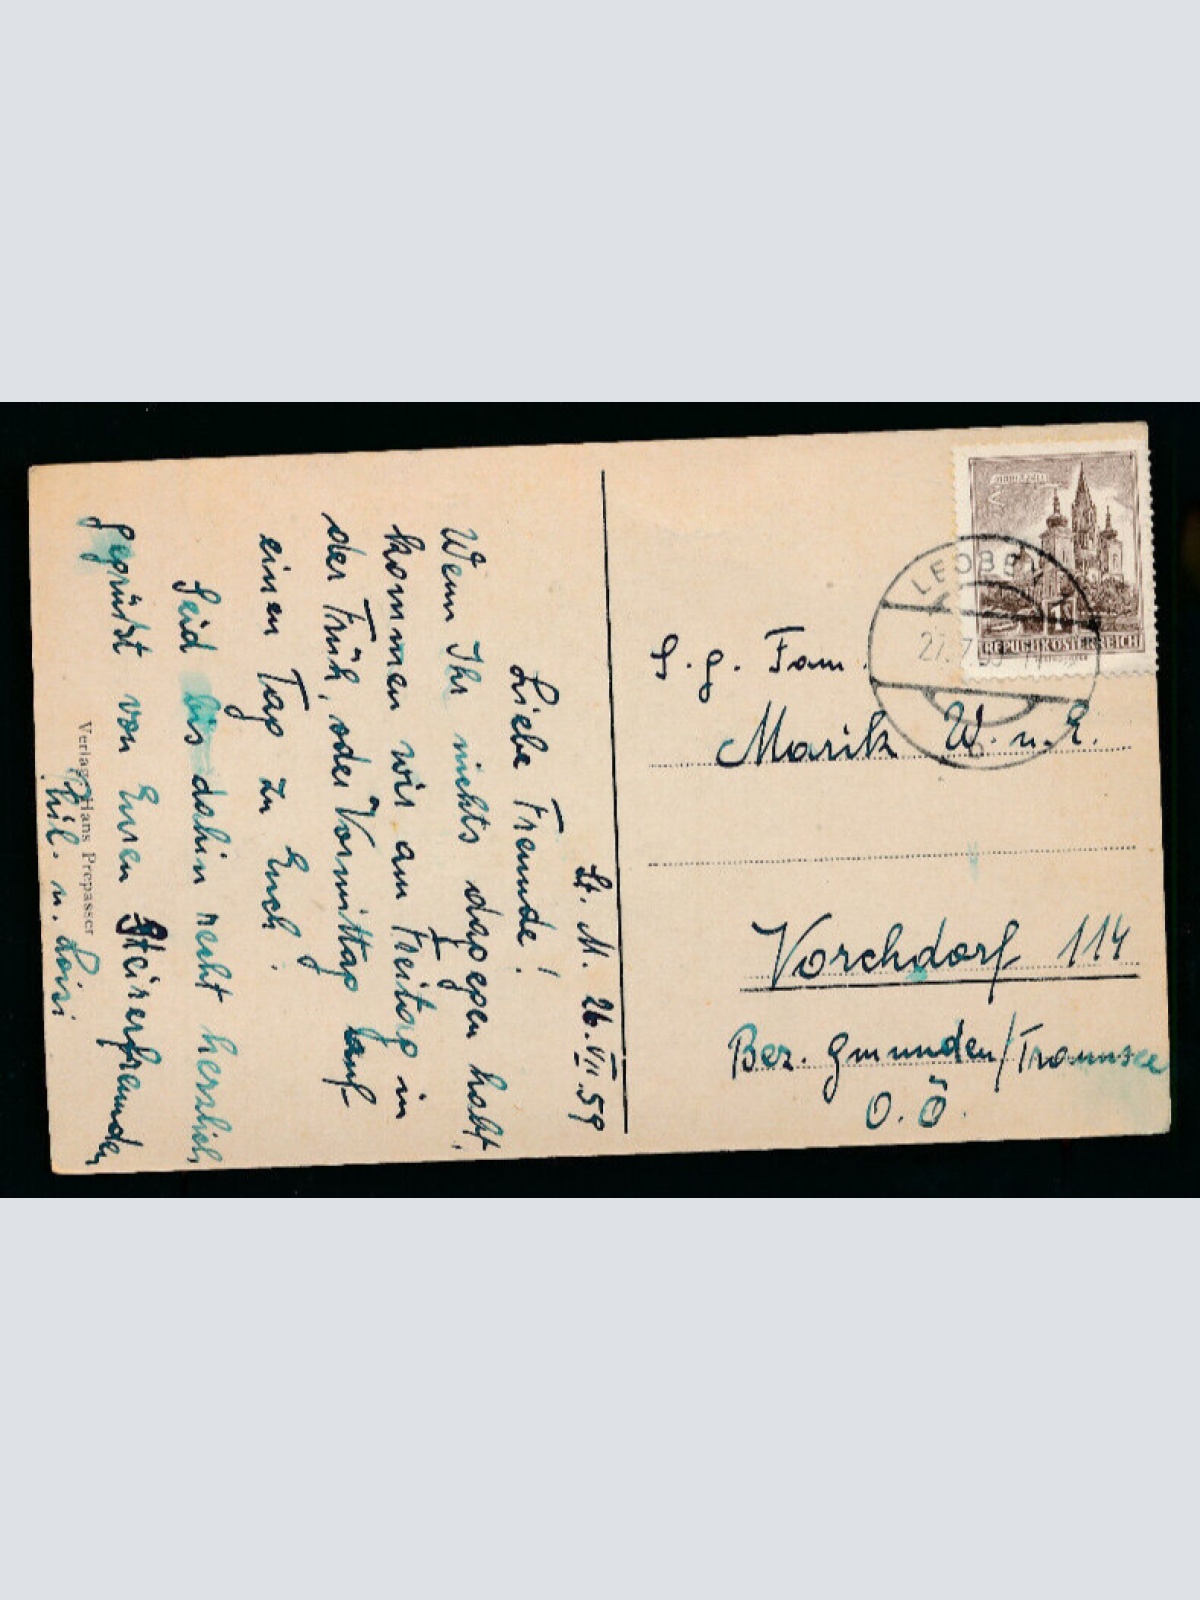 St. M. 26.VII.59
Liebe Freunde!
Wenn Ihr nichts dagegen habt,
kommen wir am Freitag in
der Früh, oder Vormittag auf
einen Tag zu Euch!
Seid bis dahin recht herzlich
gegrüßt von Euren Steirerfreunden
Phil. u. Loisi
Verlag Hans Prepasser
MARIAZELL
REPUBLIK ÖSTERREICH
LEOBEN 1
27.7.59
S. g. Fam.
Marik W. u. E.
Vorchdorf 114
Bez. Gmunden/Traunsee
O.Ö.